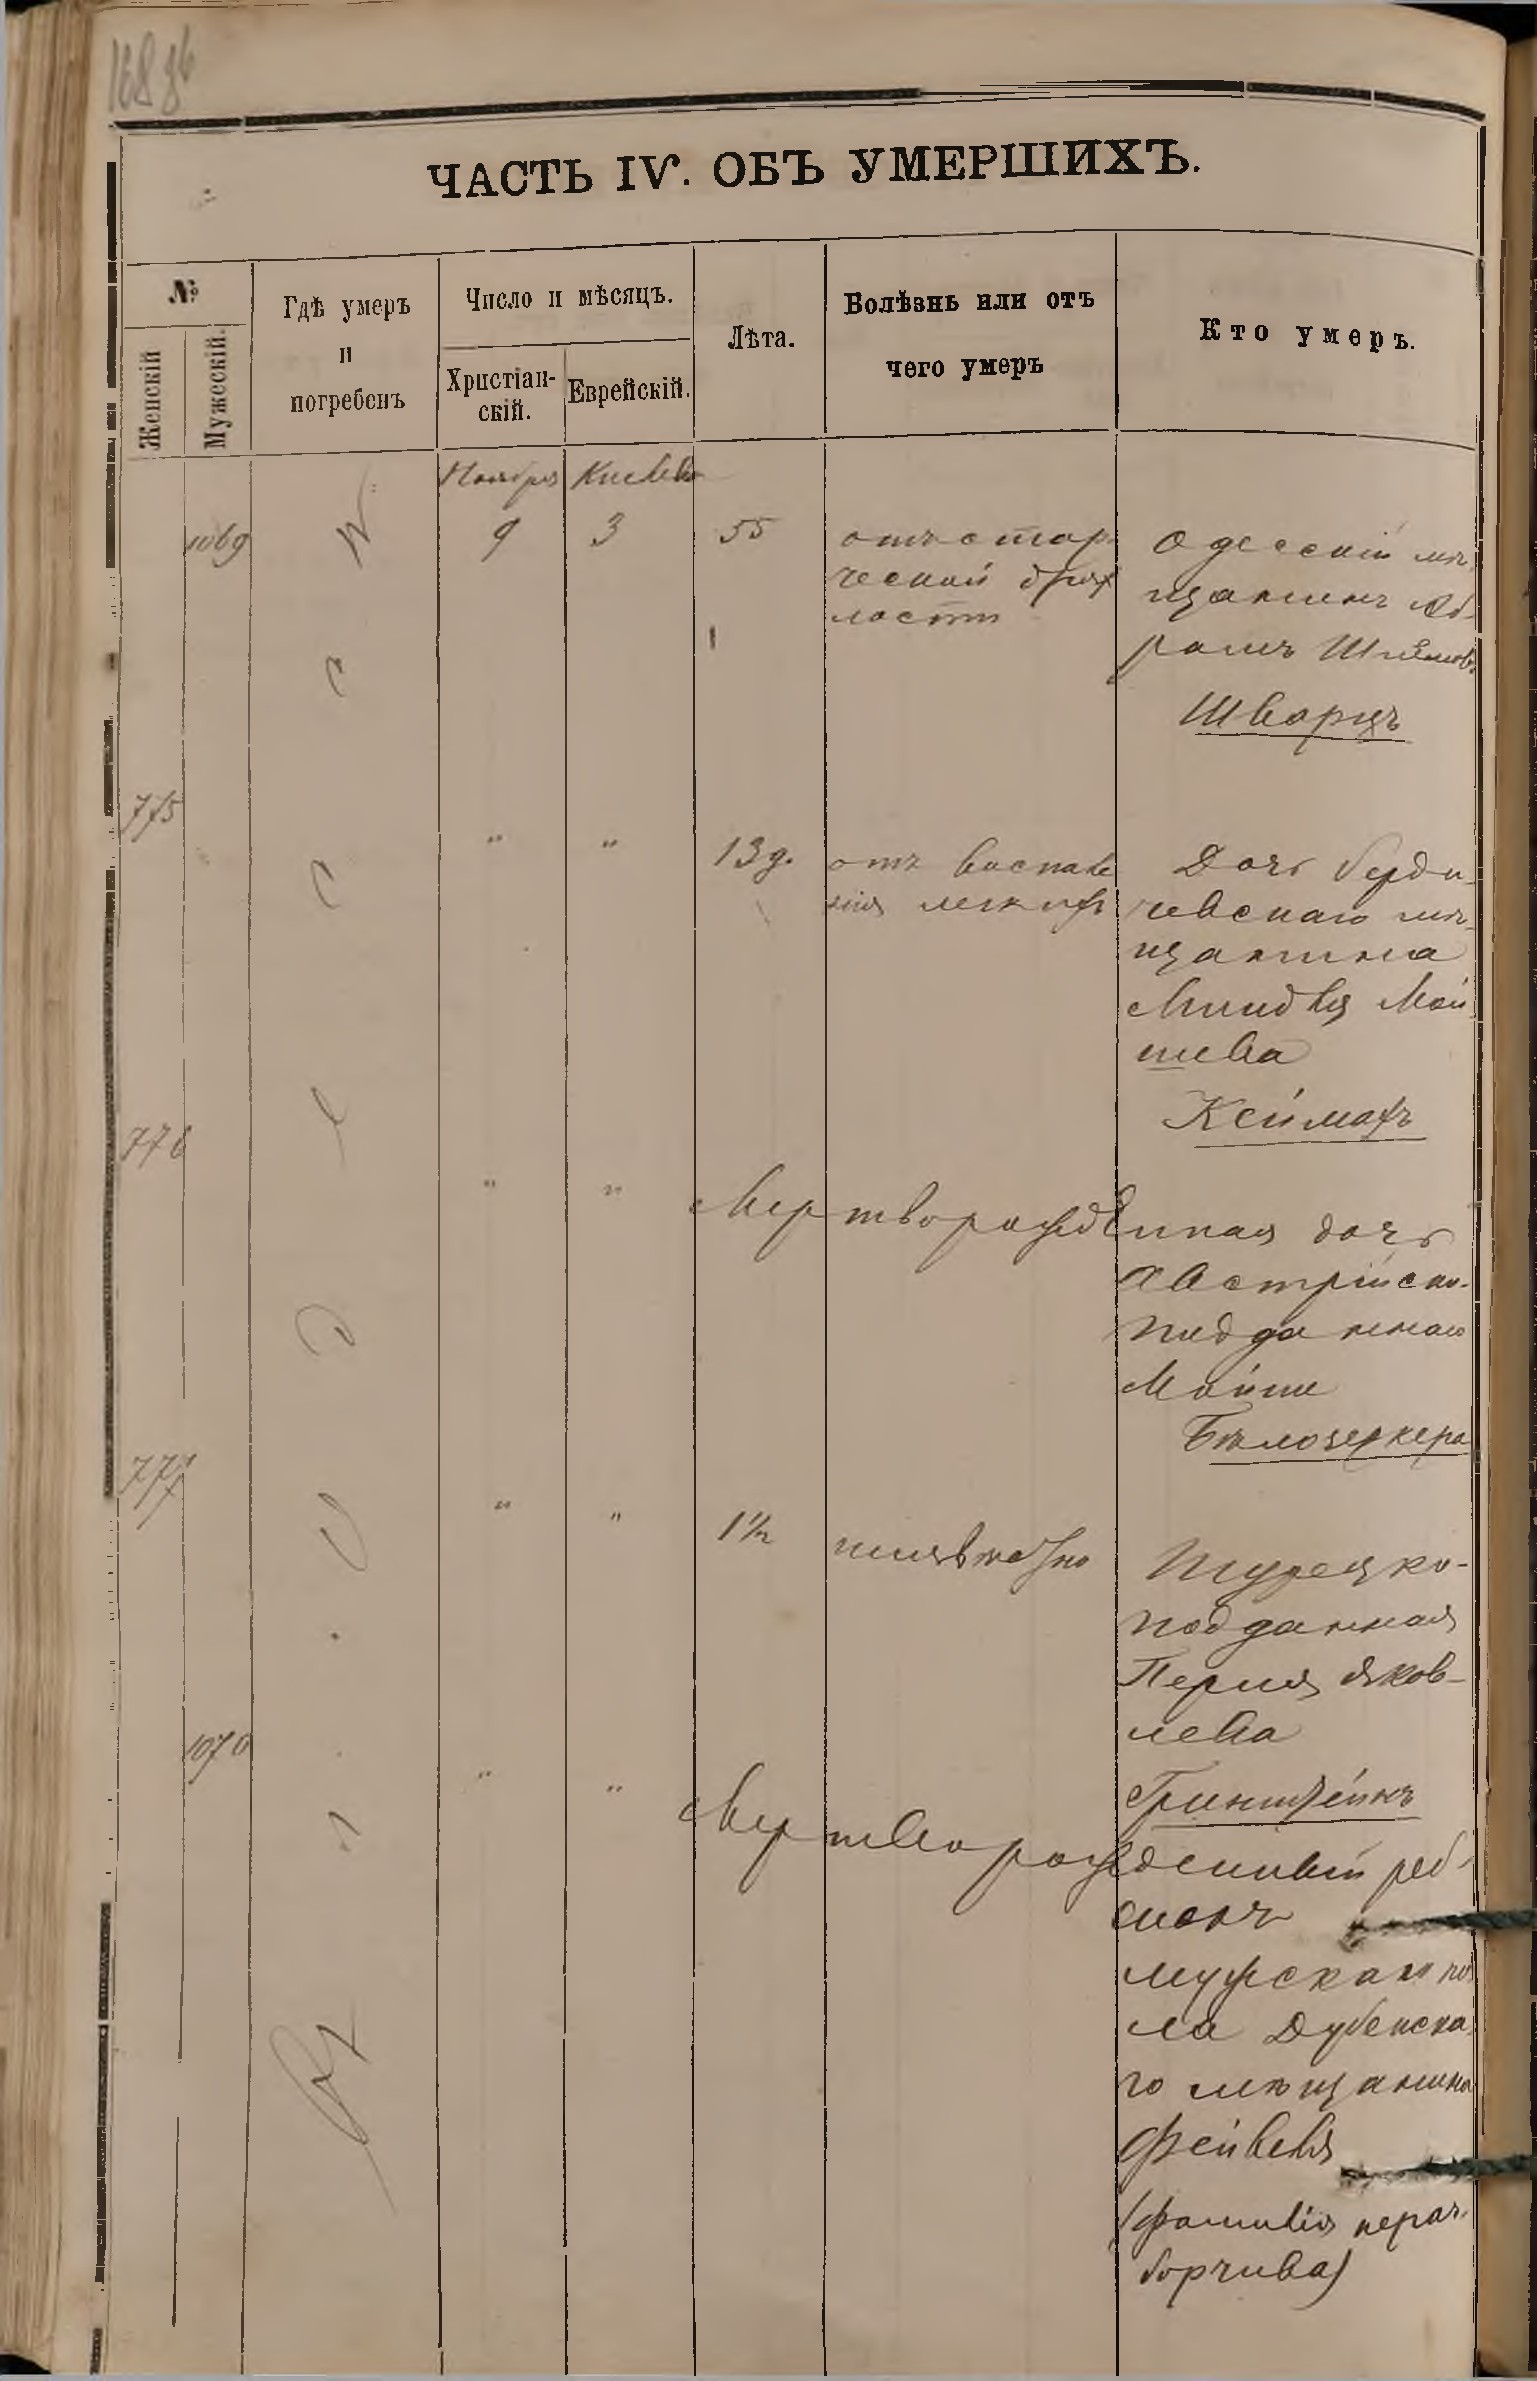 ЧАСТЬ IV. ОБЪ УМЕРШИХЪ.
№
Женскій
Мужескій.
Гдѣ умеръ
и
погребенъ
Число и мѣсяцъ.
Христіан-
скій.
Еврейскій.
Лѣта.
Болѣзнь или отъ
чего умеръ
Кто умеръ.
Ноября Кислева
1069 9 3 55
отъ стар-
ческой дрях
лости
Одесскій мѣ-
щанинъ Аб-
рамъ
Шварцъ
775 " " 13 д.
отъ воспале
нія легкихъ
Дочь Берди-
чевскаго мѣ-
щанина
Мой
шева
Кеймахъ
776 " "
Мертворожденная дочь
Австрійско-
подданнаго
Мойше
Бѣлоцеркера
777 " " 1 1/2
Турецко-
подданная
Перля Яков-
лева
Гринштейнъ
1070 " "
Мертворожденный реб-
енокъ
мужскаго по
ла Дубенска
го мѣщанина
Фейвеля
(фамилія нераз-
борчива)
В ъ О д е с с